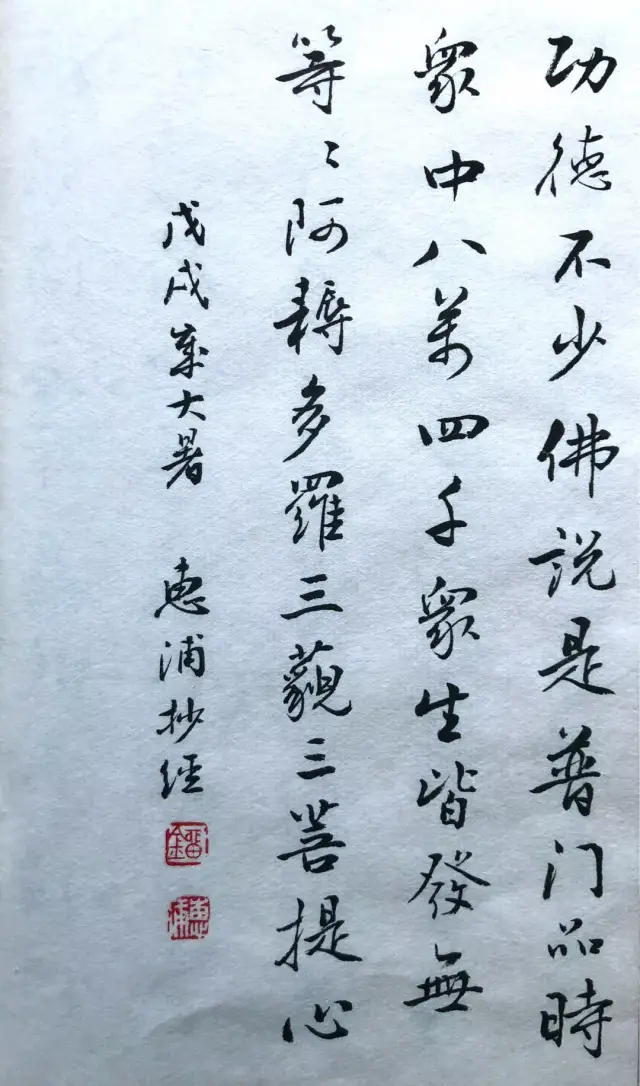 功德不少佛説是普门品時
衆中八萬四千衆生皆發無
等〻阿耨多羅三藐三菩提心
戊戌歲大暑 惠浦抄經
惠浦